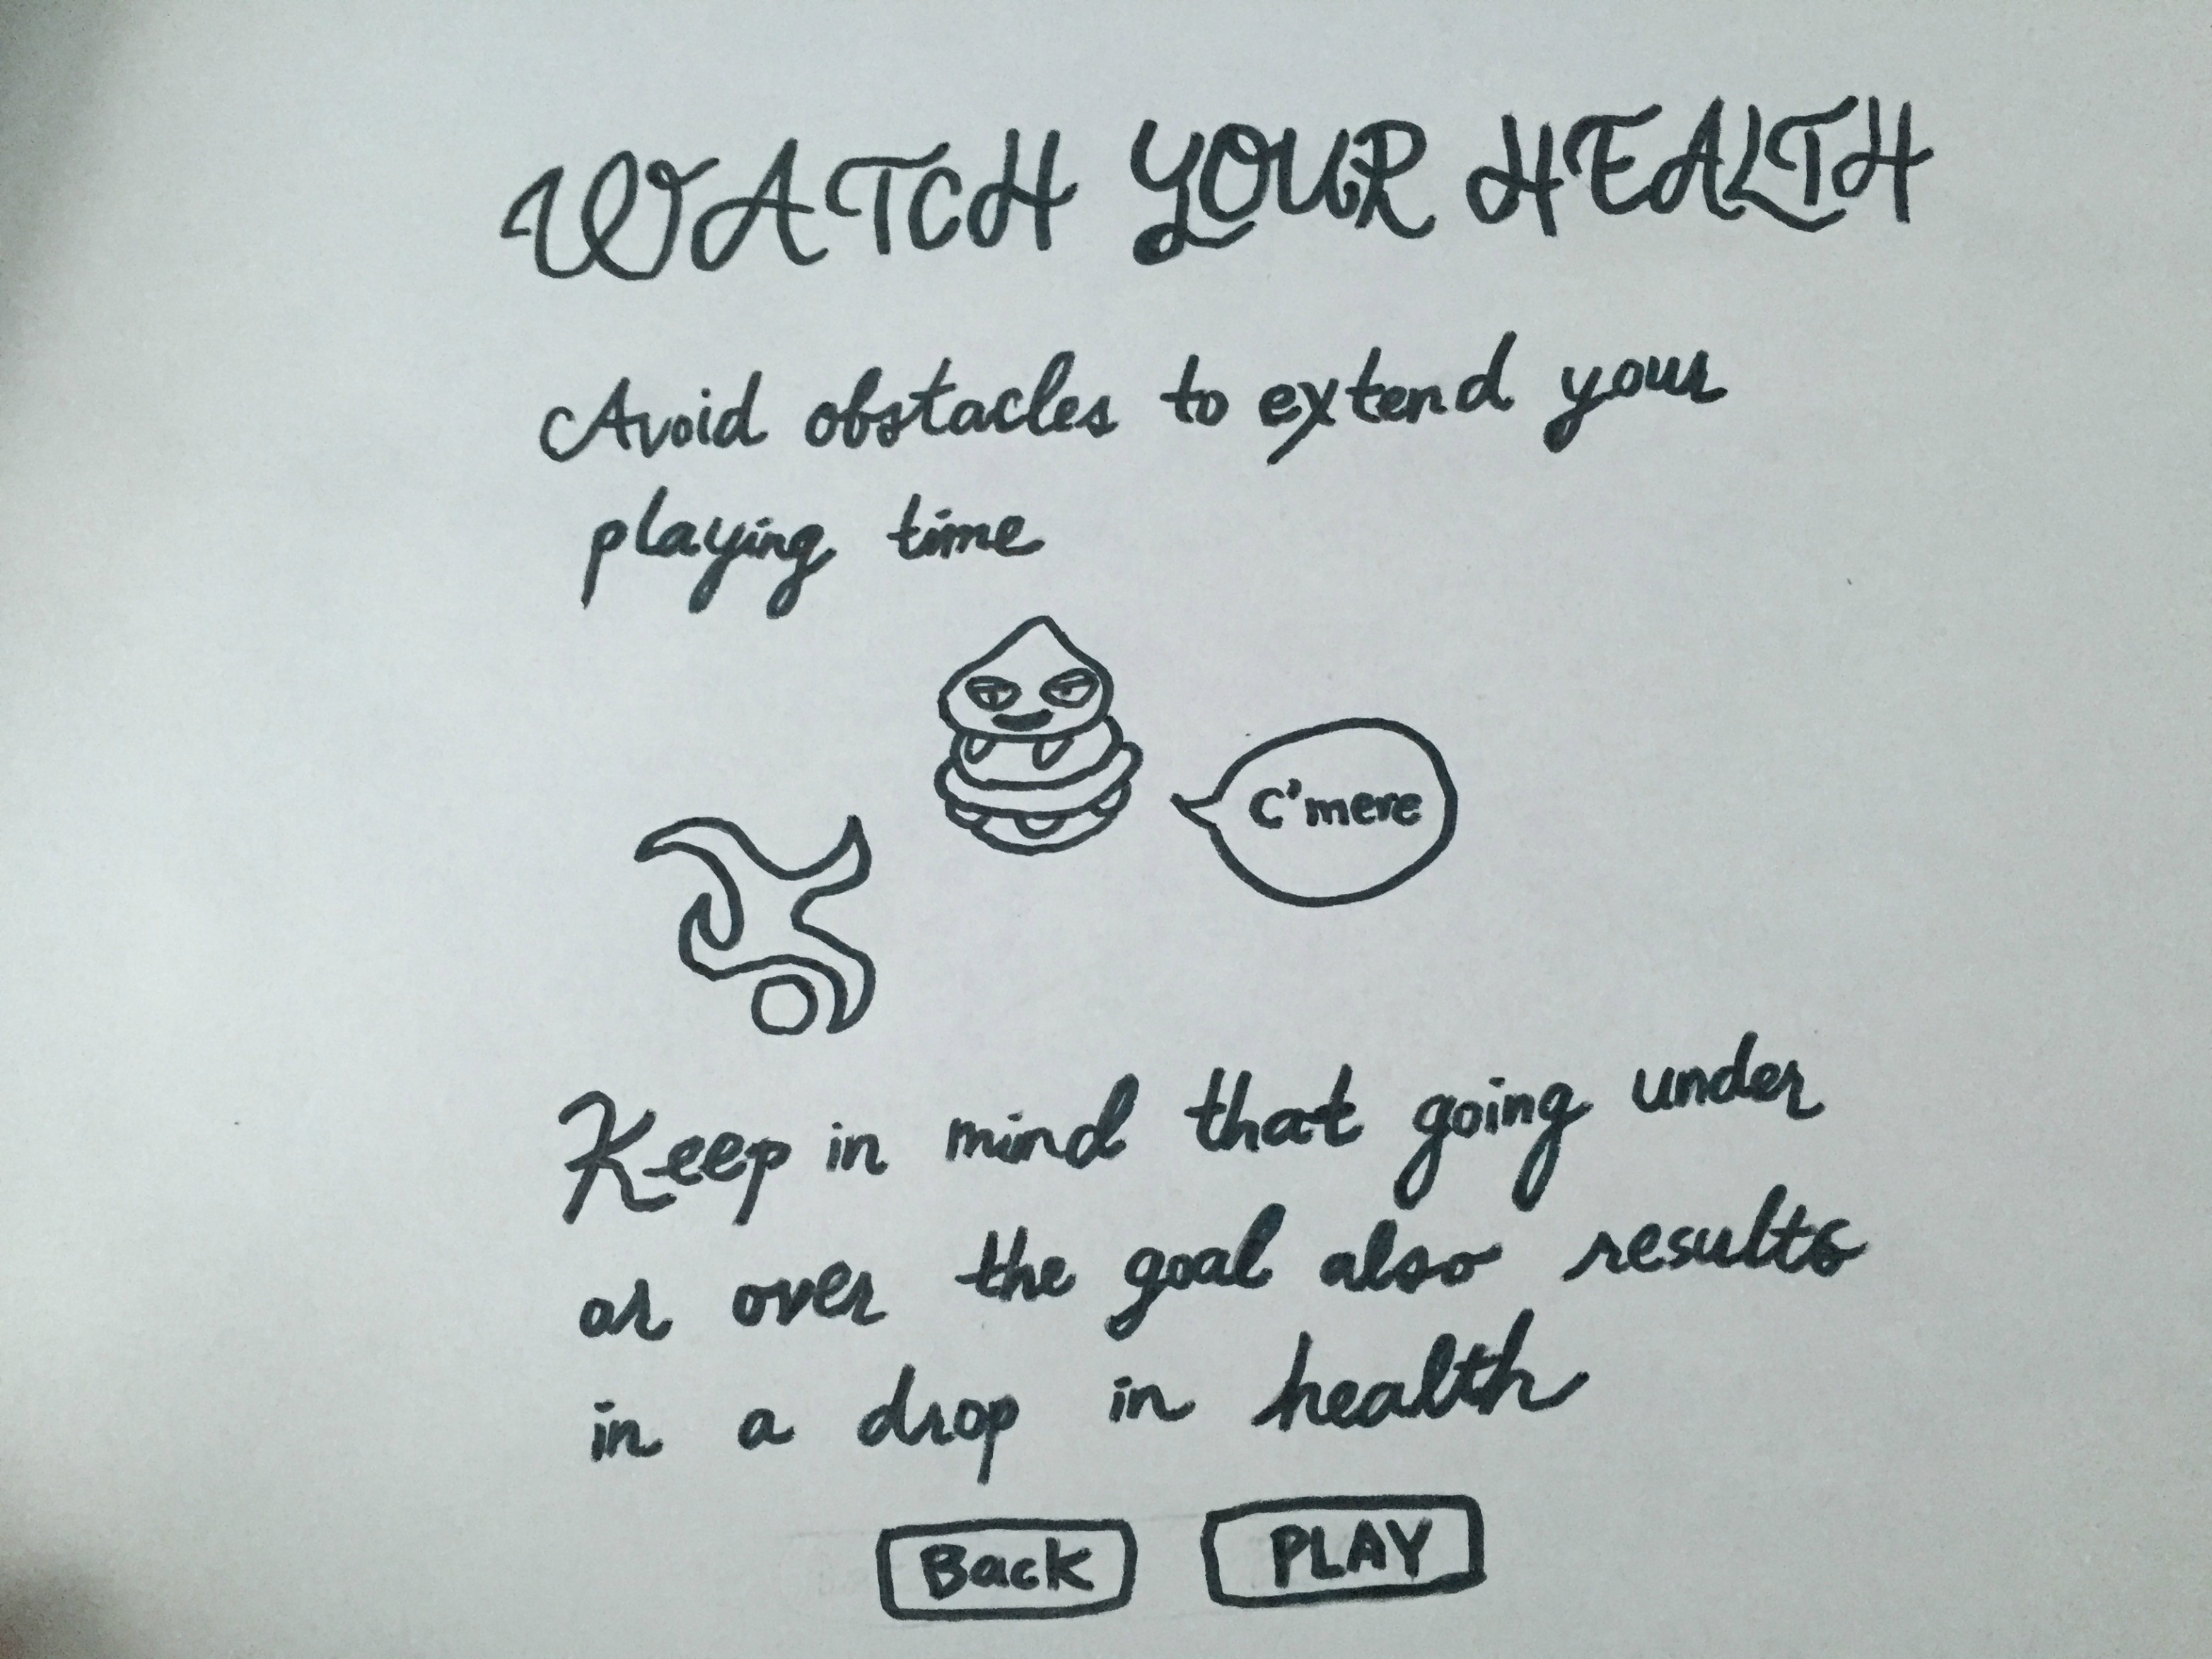 WATCH YOUR HEALTH
Avoid obstacles to extend your
playing time
C'mere
Keep in mind that going under
or over the goal also results
in a drop in health
Back PLAY